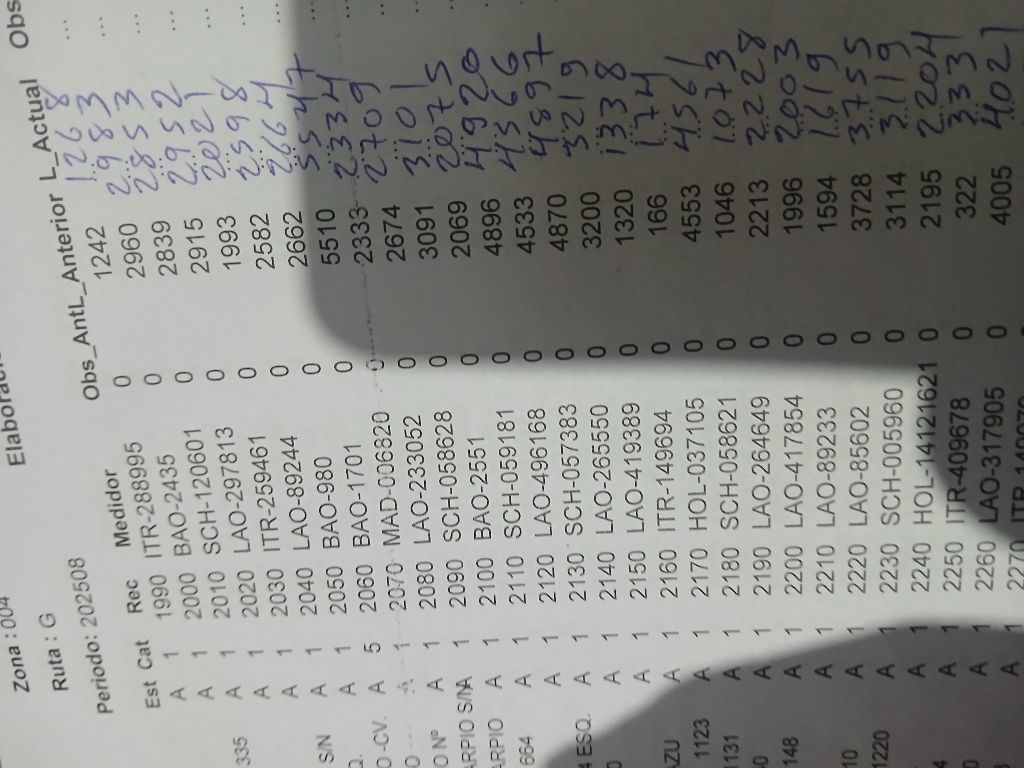 Zona : 004 Elaborac
Ruta : G
Periodo: 202508
Est Cat Rec Medidor Obs_AntL_Anterior L_Actual Obs
A 1 1990 ITR-288995 0 1242 1268 ...
A 1 2000 BAO-2435 0 2960 2983 ...
335 A 1 2010 SCH-120601 0 2839 2853 ...
A 1 2020 LAO-297813 0 2915 2952 ...
A 1 2030 ITR-259461 0 1993 2021 ...
S/N A 1 2040 LAO-89244 0 2582 2598 ...
Q. A 1 2050 BAO-980 0 2662 2664 ...
O -CV. A 5 2060 BAO-1701 0 5510 5547 ...
O A 1 2070 MAD-006820 0 2333 2334 ...
O Nº A 1 2080 LAO-233052 0 2674 2709 ...
ARPIO S/N A 1 2090 SCH-058628 0 3091 3101 ...
ARPIO A 1 2100 BAO-2551 0 2069 2075 ...
664 A 1 2110 SCH-059181 0 4896 4920 ...
A 1 2120 LAO-496168 0 4533 4566 ...
4 ESQ. A 1 2130 SCH-057383 0 4870 4897 ...
0 A 1 2140 LAO-265550 0 3200 3219 ...
A 1 2150 LAO-419389 0 1320 1338 ...
AZU A 1 2160 ITR-149694 0 166 174 ...
1123 A 1 2170 HOL-037105 0 4553 4561 ...
1131 A 1 2180 SCH-058621 0 1046 1073 ...
A 1 2190 LAO-264649 0 2213 2228 ...
148 A 1 2200 LAO-417854 0 1996 2003 ...
A 1 2210 LAO-89233 0 1594 1619 ...
10 A 1 2220 LAO-85602 0 3728 3755 ...
1220 A 1 2230 SCH-005960 0 3114 3119 ...
A 1 2240 HOL-14121621 0 2195 2204 ...
A 1 2250 ITR-409678 0 322 333 ...
A 1 2260 LAO-317905 0 4005 4021 ...
A 1 2270